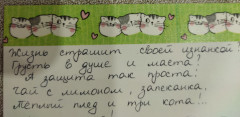 Жизнь страшит своей изнанкой
Грусть в душе и маета!
А защита так проста:
Чай с лимоном, запеканка,
Тёплый плед и три кота...